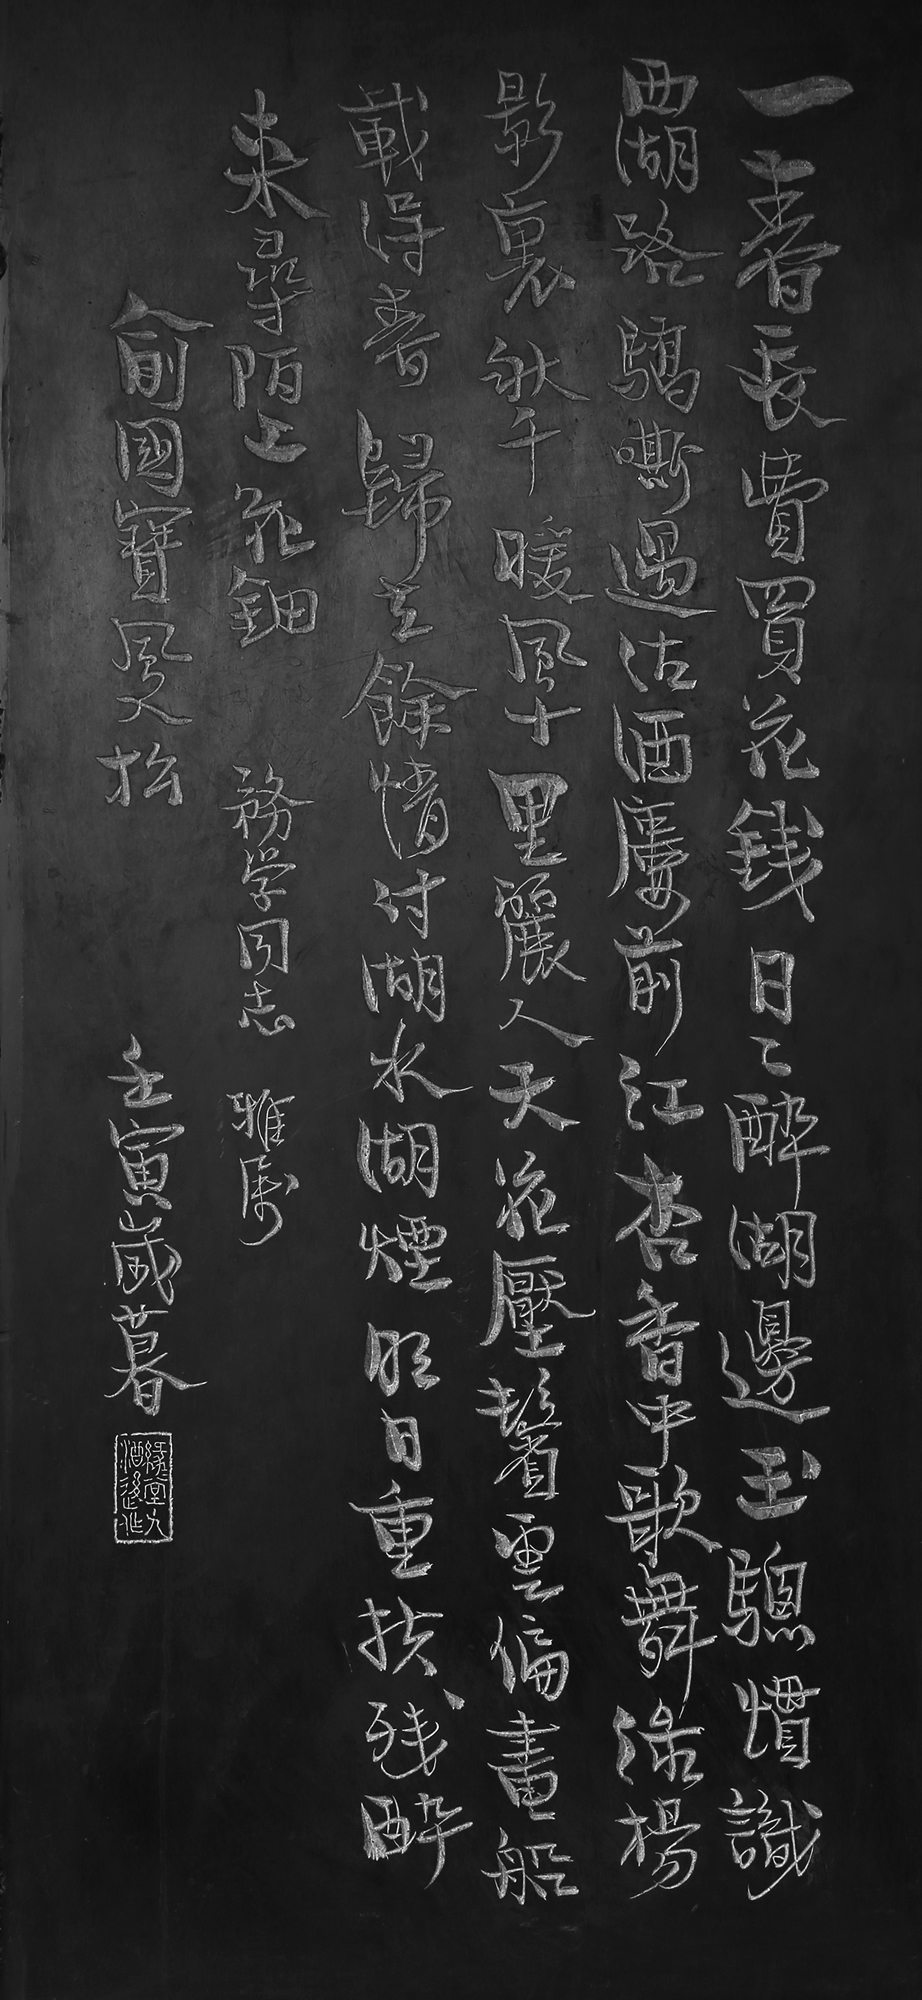 一春長費買花錢日〻醉湖邊玉驄慣識
西湖路驕嘶過沽酒廔前江杏香中歌舞淥楊
影裏秋千暖風十里麗人天花壓鬢雲偏畫船
載得春歸去餘情付湖水湖煙明日重扶残醉
来尋陌上花鈿
務学同志 雅屬
俞國寶風入松
壬寅歲暮